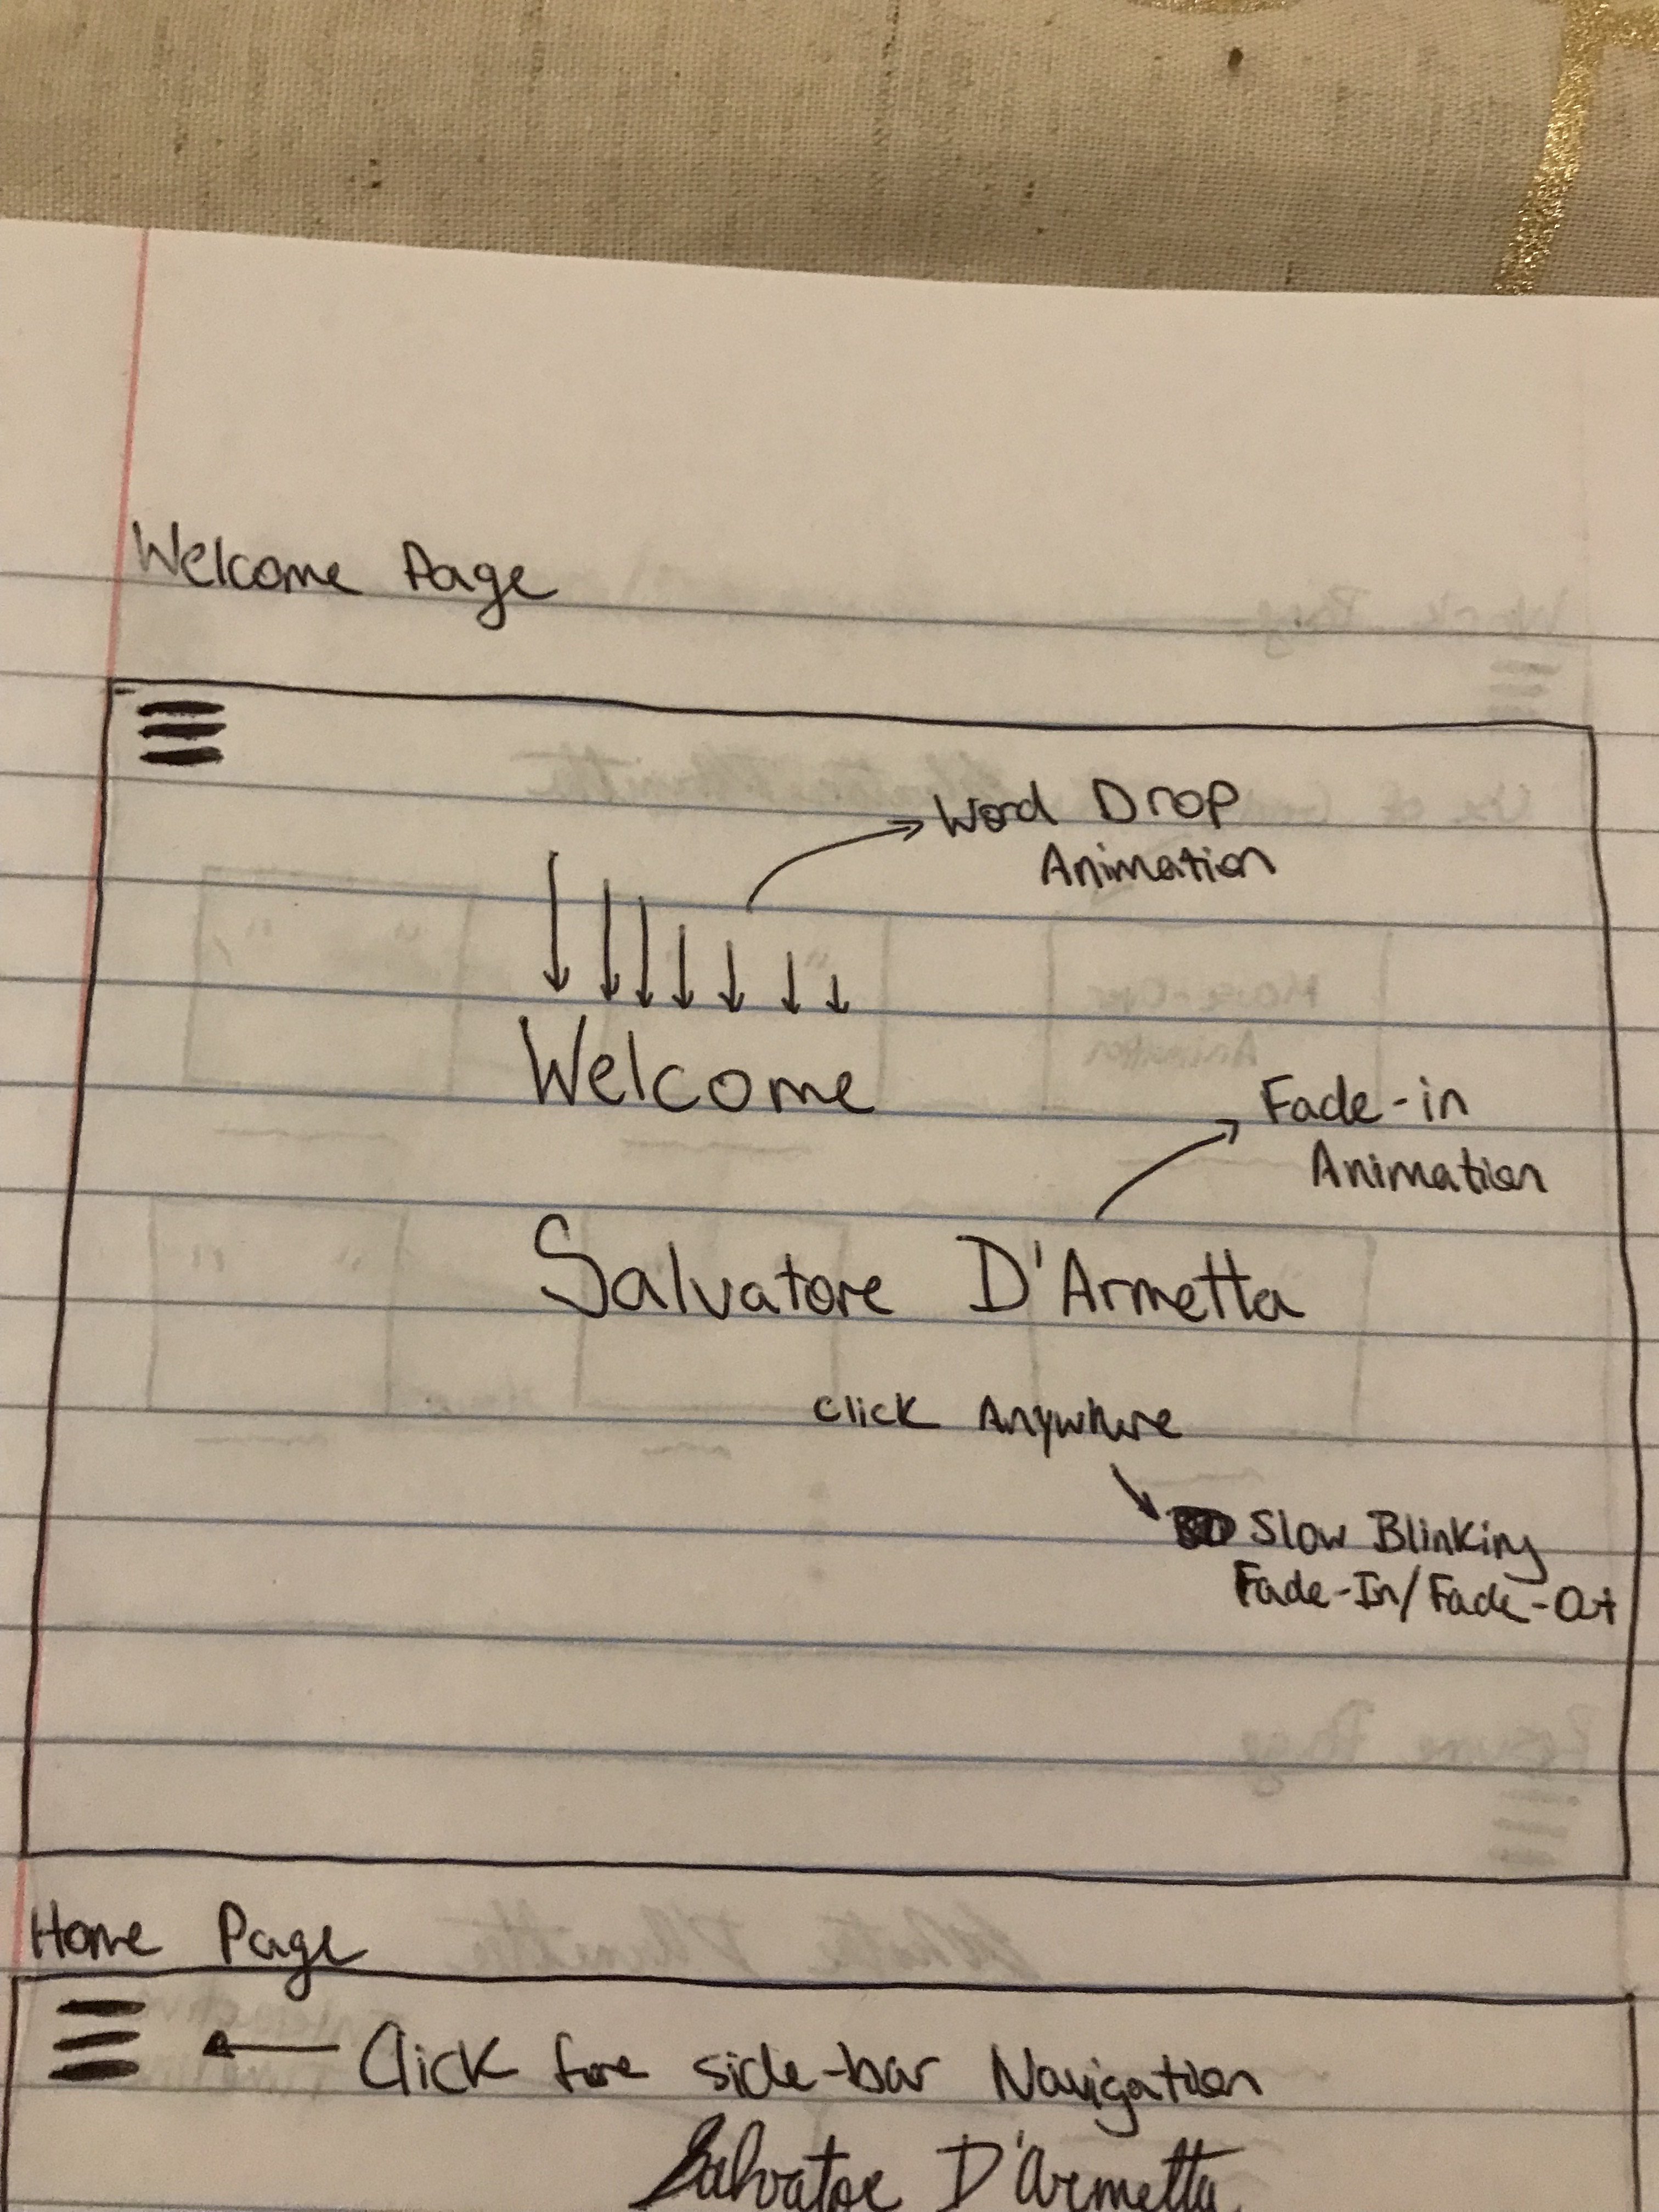 Welcome Page
Word Drop
Animation
Welcome
Fade-in
Animation
Salvatore D'Armetta
click Anywhere
Slow Blinking
Fade-In/Fade-Out
Home Page
Click for side-bar Navigation
Salvatore D'Armetta